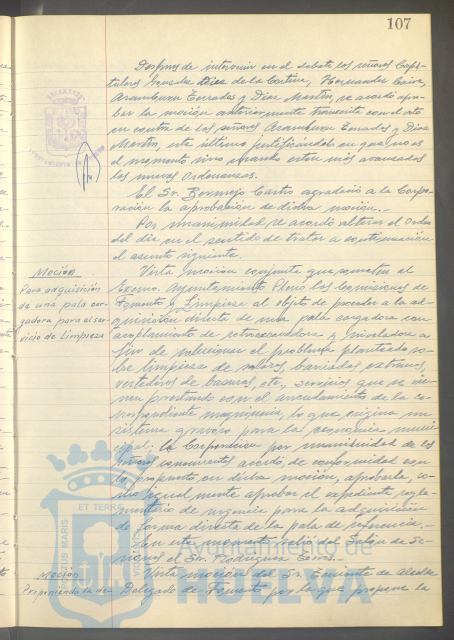 107
Despues de intervenir en el debate los señores Capi-
tulares Gonzalez Diez de la Cortina, Hernandez
Aramburu Terrades y Diaz Martin, se acordó apro-
bar la moción anteriormente transcrita con el voto
en contra de los señores Aramburu Terrades y Diaz
Martin, este último justificándolo en que no es
el momento sino cuando esten más avanzadas
las nuevas Ordenanzas.
El Sr. Bermejo Castro agradeció a la Corpo-
ración la aprobación de dicha moción.-
Por unanimidad se acordó alterar el Orden
del dia en el sentido de tratar a continuación
el asunto siguiente.
Moción
Para adquisición
de una pala car-
gadora para el ser-
vicio de Limpieza
Vista moción conjunta que someten al
Excmo. Ayuntamiento Pleno las Comisiones de
Fomento y Limpieza al objeto de proceder a la ad-
quisición directa de una pala cargadora con
acoplamiento de retroexcavadora y niveladora a
fin de solucionar el problema planteado so-
bre limpieza de solares, barriadas extremas,
vertederos de basuras, etc., servicios que se vie-
nen prestando con el arrendamiento de la co-
rrespondiente maquinaria, lo que origina un
sistema gravoso para la economia muni-
cipal. La Corporación por unanimidad de los
señores concurrentes acordó de conformidad con
lo propuesto en dicha moción, aprobarla, co-
mo igualmente aprobar el expediente regla-
mentario de urgencia para la adquisición
de forma directa de la pala de referencia.-
En este momento salió del Salón de Se-
siones el Sr. Rodriguez
Moción
Proponiendo la de
Vista moción del Sr. Teniente de Alcalde
Delegado de Fomento por la que propone la
ET TERRAE
PORTUS MARIS
Ayuntamiento de
HUELVA